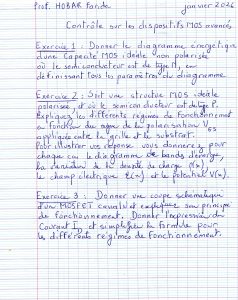 Prof. HOBAR Farida. janvier 2026
Contrôle sur les dispositifs MOS avancés
Exercice 1 : Donner le diagramme énergétique
d'une Capacité MOS idéale non polarisée
où le semiconducteur est de type P, en
définissant tous les paramètres du diagramme.
Exercice 2 : Soit une structure MOS idéale
polarisée, et où le semiconducteur est de type P.
Expliquez les différents régimes de fonctionnement
en fonction du signe de la polarisation V
appliquée entre la grille et le substrat.
Pour illustrer vos réponses vous donnerez pour
chaque cas le diagramme de bandes d'énergie,
la variation de la densité de charge ρ(x),
le champ électrique E(x) et le potentiel V(x).
Exercice 3 : Donner une coupe schématique
d'un MOSFET canal N et expliquer son principe
de fonctionnement. Donner l'expression du
Courant ID et simplifier la formule pour
les différents régimes de fonctionnement.